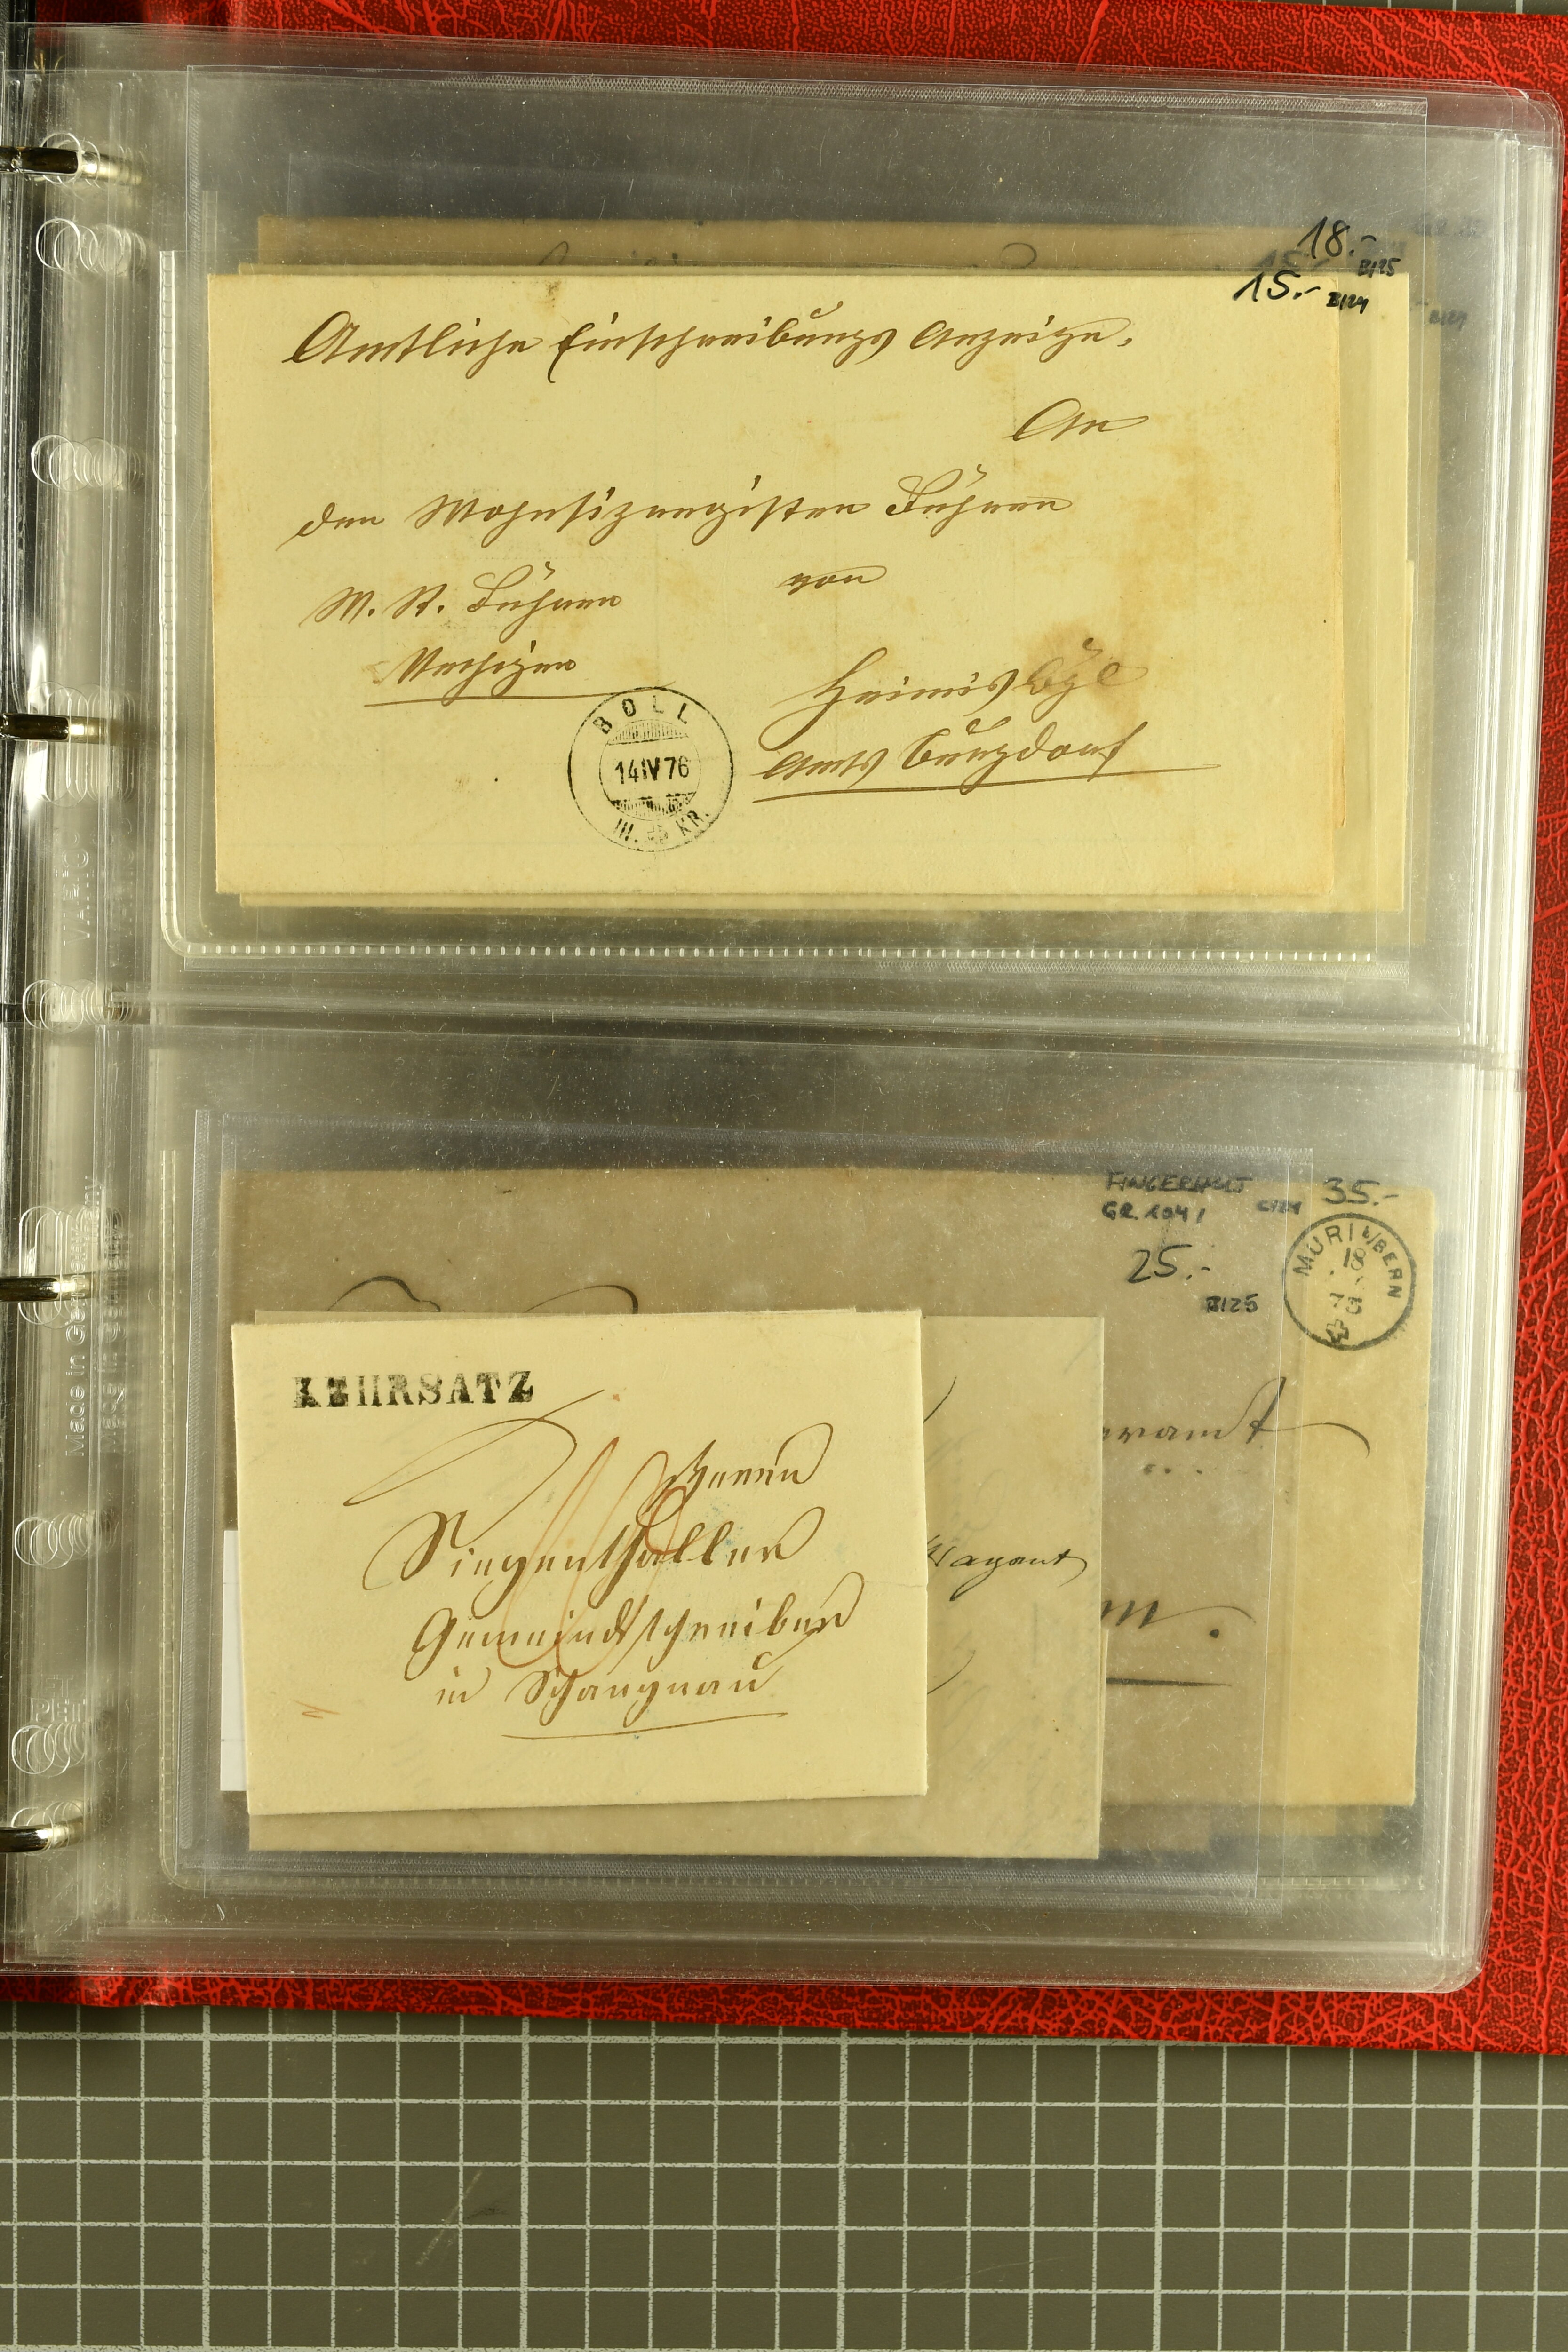 18.-
B125
15.-
B124
Amtliche Einschreibungs Anzeige.
An
den Wohnsizregister Führer
von
W. R. Führer
Vechigen
Heimiswyl
Amts Burgdorf
BOLL
14 IV 76
III. KR.
FINGERHUT
GR. 104 /
35.-
25.-
B125
MURI b/BERN
18
75
KEHRSATZ
Herrn
Siegenthaller
Gemeindschreiber
in Schangnau
Made in Germany